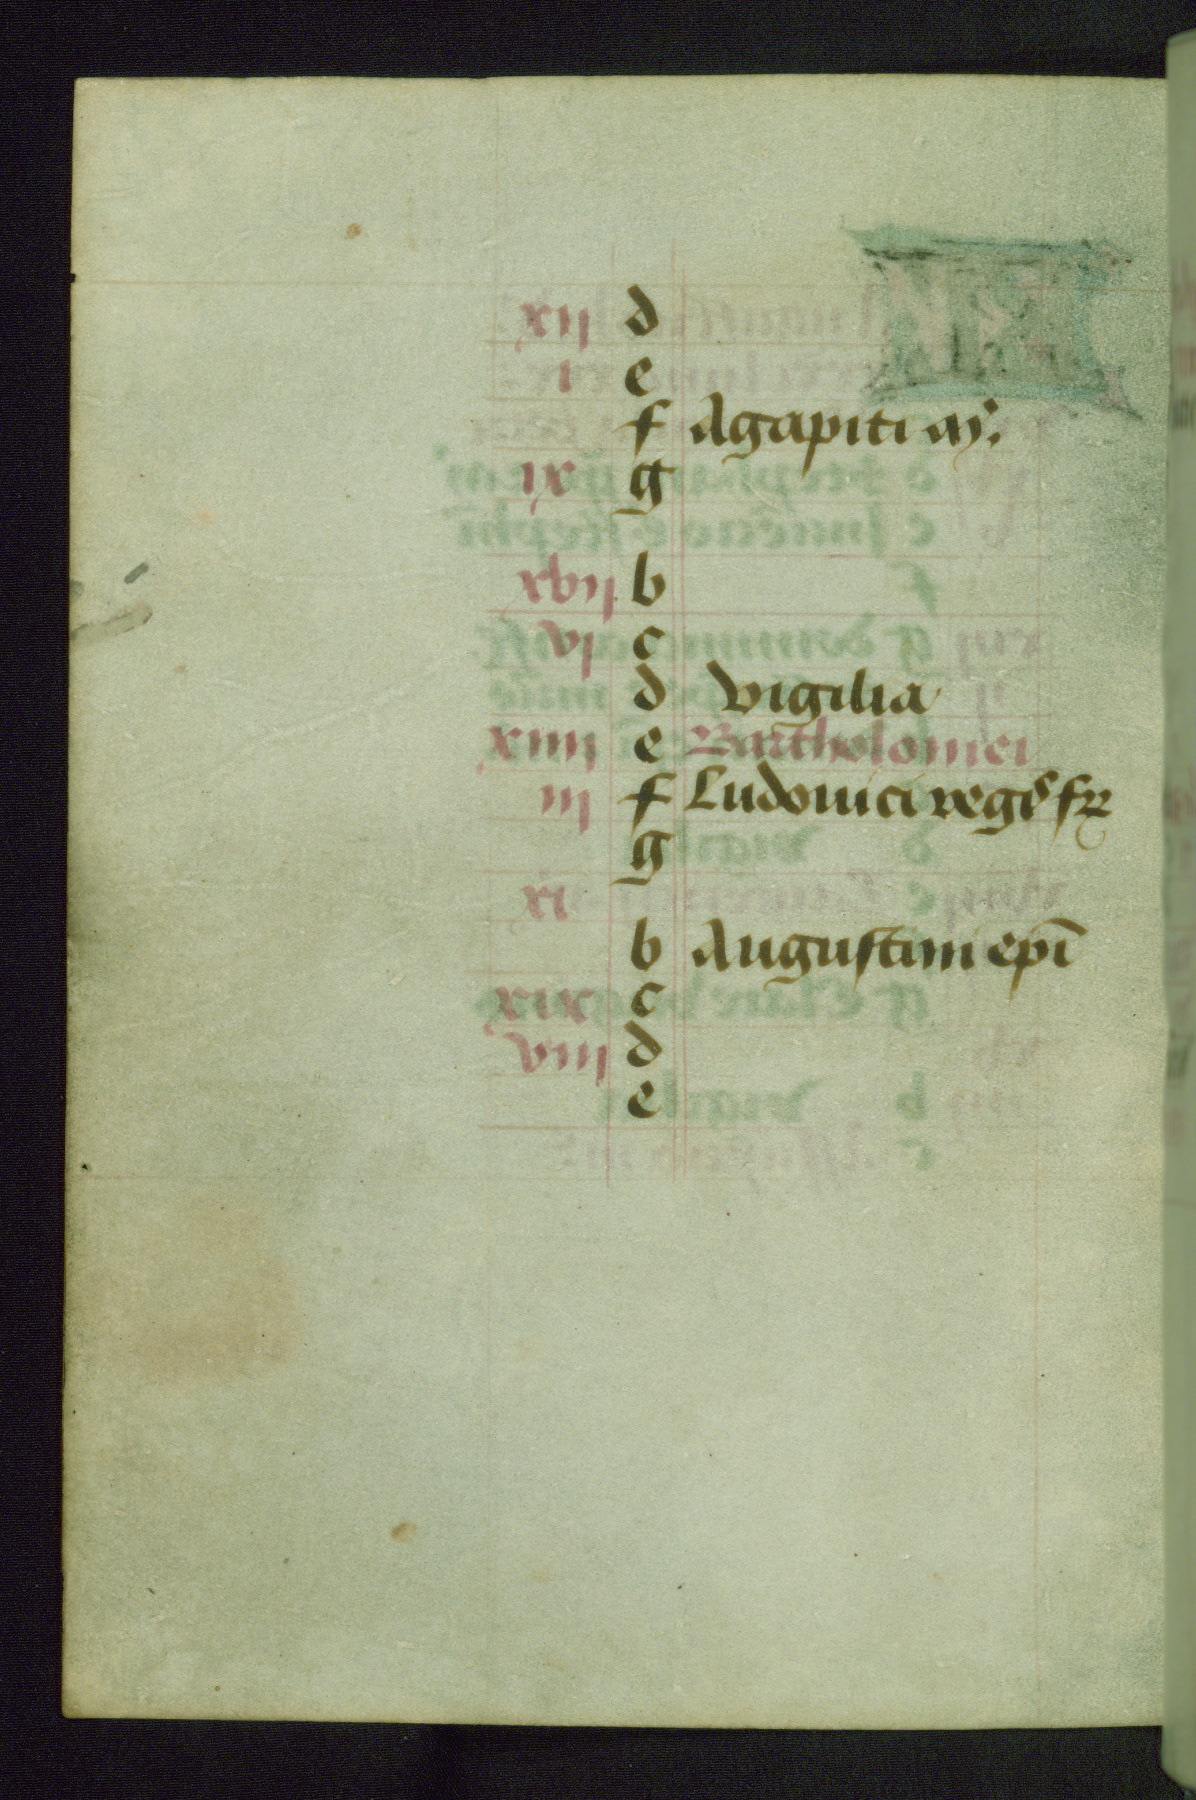 xij d
i e
f Agapiti m̃.
ix g
xvij b
vj c
d vigilia
xiiij e Bartholomei
iij f Ludovici regis fr
g
xi
b Augustini epi
xix c
viij d
e